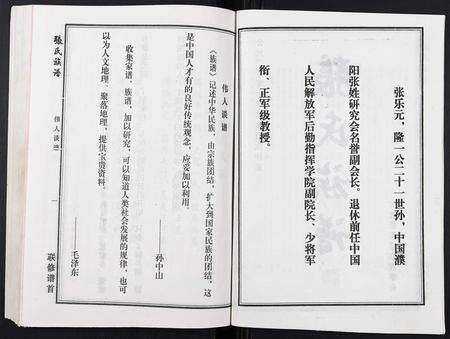 张乐元，隆一公二十一世孙，中国濮
阳张姓研究会名誉副会长。退休前任中国
人民解放军后勤指挥学院副院长、少将军
衔、正军级教授。
伟人谈谱
《族谱》记述中华民族，由宗族团结，扩大到国家民族的团结，这
是中国人才有的良好传统观念，应妥加以利用。
——孙中山
收集家谱、族谱，加以研究，可以知道人类社会发展的规律，也可
以为人文地理、聚落地理，提供宝贵资料。
——毛泽东
张氏族谱
伟人谈谱
一
联修谱首